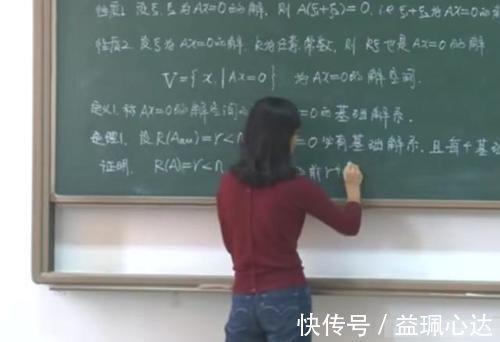 性质1. 设ξ₁,ξ₂为Ax=0的解, 则 A(ξ₁+ξ₂)=0. i.e ξ₁+ξ₂为Ax=0的解
性质2. 设ξ为Ax=0的解, k为任意常数, 则 kξ 也是Ax=0的解
V={x | Ax=0} 为Ax=0的解空间.
定义1. 称Ax=0的解空间的 =0的基础解系.
定理1. 设 R(Aₘₓₙ)=r<n =0必有基础解系. 且每个基础
证明. R(A)=r<n 前r个
快传号 / 益珮心达